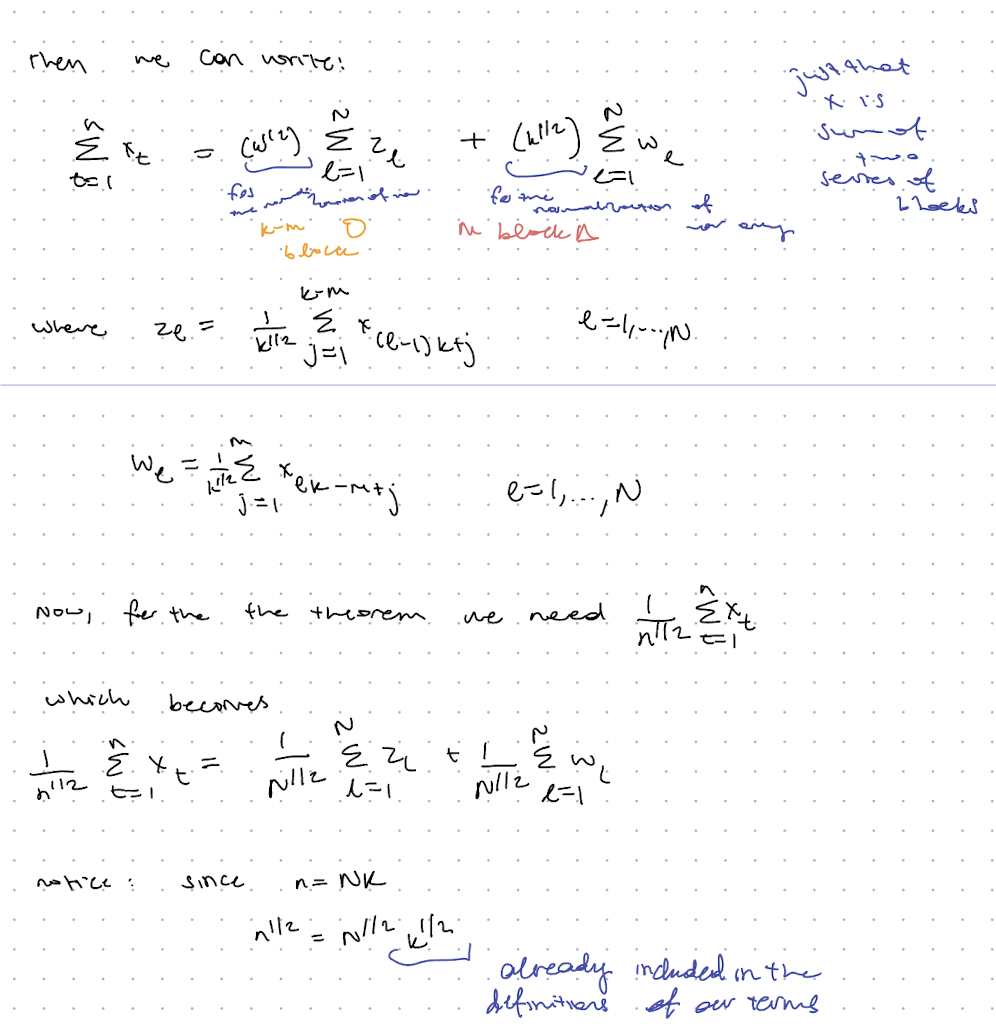 then we can write:
just that
x is
sum of
two
series of
blocks
n∑t=1 x_t = (k^{1/2}) N∑l=1 z_l + (k^{1/2}) N∑l=1 w_l
for the normalization of
for the normalization of our array
k-m block
m block
where z_l = 1/k^{1/2} k-m∑j=1 x_{(l-1)k+j} l=1,...,N.
w_l = 1/k^{1/2} m∑j=1 x_{lk-m+j} l=1,...,N
Now, for the the theorem we need 1/n^{1/2} n∑t=1 x_t
which becomes
1/n^{1/2} n∑t=1 x_t = 1/N^{1/2} N∑l=1 z_l + 1/N^{1/2} N∑l=1 w_l
notice: since n = NK
n^{1/2} = N^{1/2} k^{1/2}
already included in the
definitions of our terms